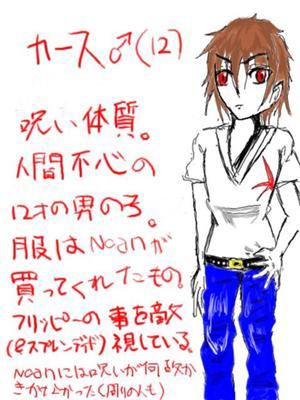 カース♂(12)
呪い体質。
人間不心の
12才の男の子。
服はNoanが
買ってくれたもの。
フリッピーの事を敵
(&スプレンディド)視している。
Noanには呪いが何故か
きかなかった(周りの人も)